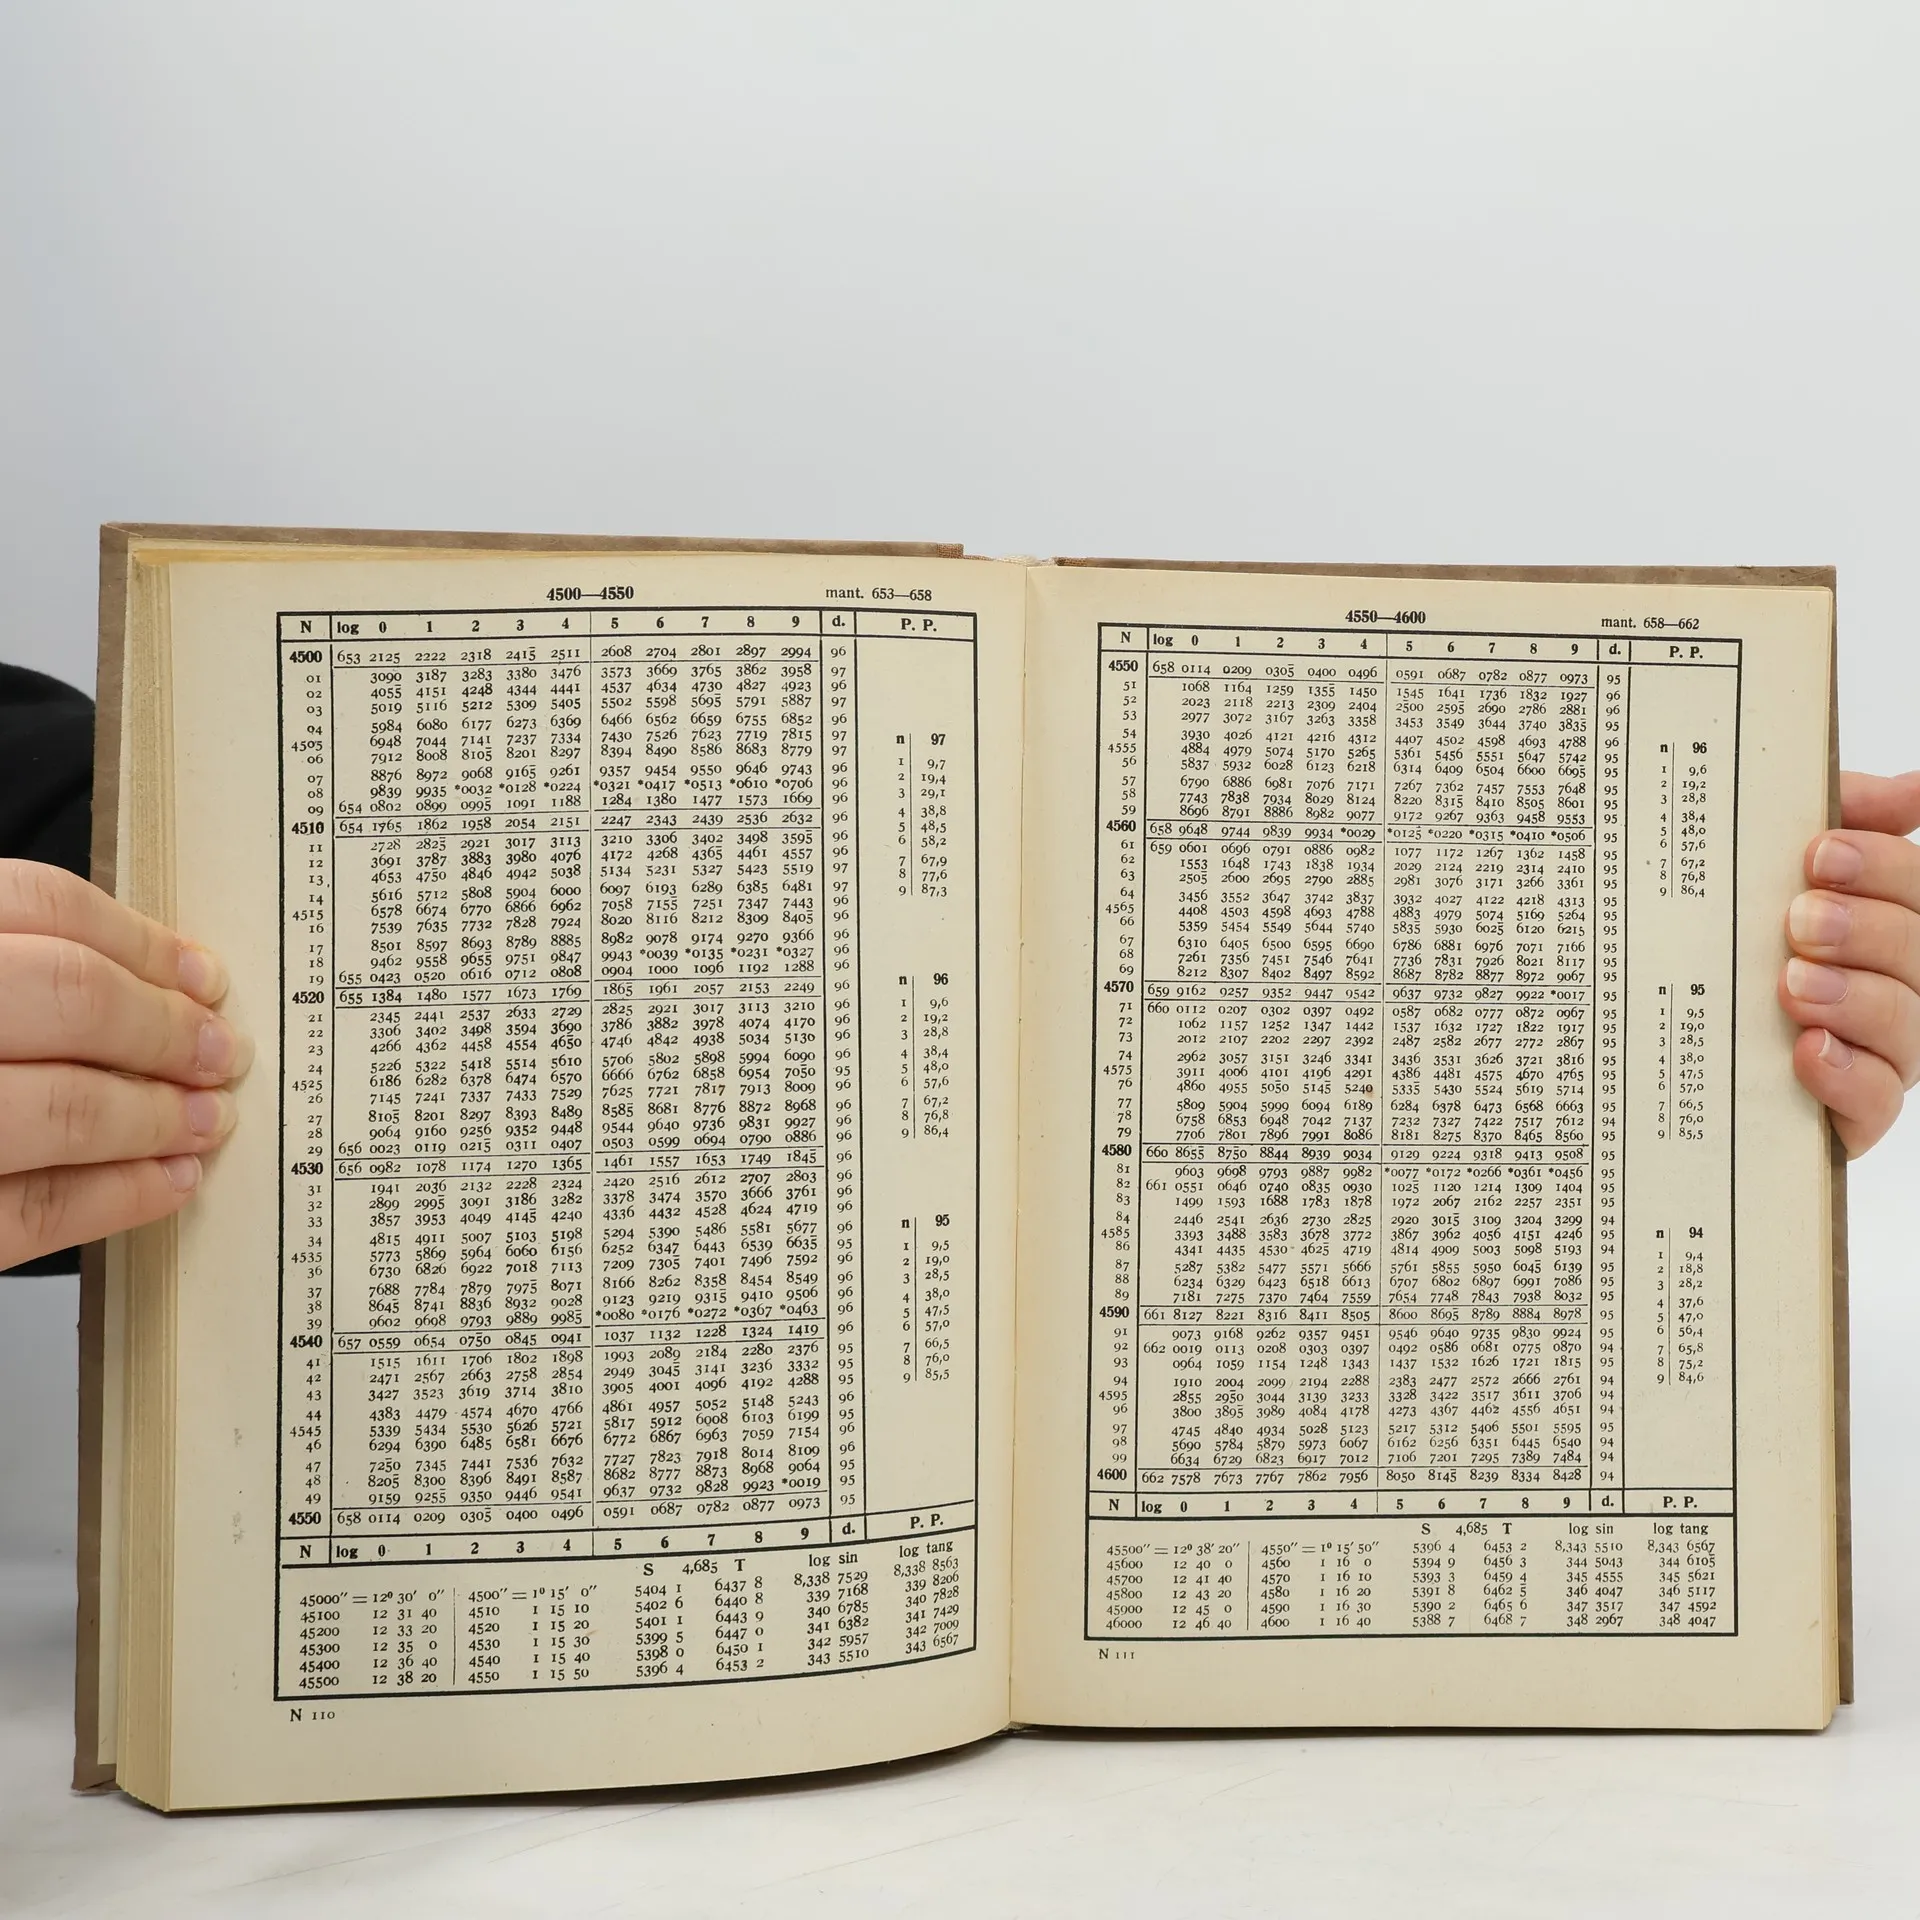 4500—4550 mant. 653—658
N log 0 1 2 3 4 5 6 7 8 9 d. P. P.
4500 653 2125 2222 2318 2415̄ 2511 2608 2704 2801 2897 2994 96
01 3090 3187 3283 3380 3476 3573 3669 3765 3862 3958 97
02 4055 4151 4248 4344 4441 4537 4634 4730 4827 4923 96
03 5019 5116 5212 5309 5405 5502 5598 5695̄ 5791 5887 97
04 5984 6080 6177 6273 6369 6466 6562 6659 6755 6852 96
4505 6948 7044 7141 7237 7334 7430 7526 7623 7719 7815 97
06 7912 8008 8105̄ 8201 8297 8394 8490 8586 8683 8779 97
07 8876 8972 9068 9165̄ 9261 9357 9454 9550 9646 9743 96
08 9839 9935 *0032 *0128 *0224 *0321 *0417 *0513 *0610 *0706 96
09 654 0802 0899 0995̄ 1091 1188 1284 1380 1477 1573 1669 96
4510 654 1765 1862 1958 2054 2151 2247 2343 2439 2536 2632 96
11 2728 2825̄ 2921 3017 3113 3210 3306 3402 3498 3595̄ 96
12 3691 3787 3883 3980 4076 4172 4268 4365̄ 4461 4557 96
13 4653 4750 4846 4942 5038 5134 5231 5327 5423 5519 97
14 5616 5712 5808 5904 6000 6097 6193 6289 6385 6481 97
4515 6578 6674 6770 6866 6962 7058 7155̄ 7251 7347 7443 96
16 7539 7635 7732 7828 7924 8020 8116 8212 8309 8405̄ 96
17 8501 8597 8693 8789 8885 8982 9078 9174 9270 9366 96
18 9462 9558 9655̄ 9751 9847 9943 *0039 *0135 *0231 *0327 96
19 655 0423 0520 0616 0712 0808 0904 1000 1096 1192 1288 96
4520 655 1384 1480 1577 1673 1769 1865̄ 1961 2057 2153 2249 96
21 2345 2441 2537 2633 2729 2825 2921 3017 3113 3210 96
22 3306 3402 3498 3594 3690 3786 3882 3978 4074 4170 96
23 4266 4362 4458 4554 4650 4746 4842 4938 5034 5130 96
24 5226 5322 5418 5514 5610 5706 5802 5898 5994 6090 96
4525 6186 6282 6378 6474 6570 6666 6762 6858 6954 705̄0 95
26 7145 7241 7337 7433 7529 7625 7721 7817 7913 8009 96
27 8105̄ 8201 8297 8393 8489 8585̄ 8681 8776 8872 8968 96
28 9064 9160 9256 9352 9448 9544 9640 9736 9831 9927 96
29 656 0023 0119 0215̄ 0311 0407 0503 0599 0694 0790 0886 96
4530 656 0982 1078 1174 1270 1365 1461 1557 1653 1749 1845̄ 96
31 1941 2036 2132 2228 2324 2420 2516 2612 2707 2803 96
32 2899 2995̄ 3091 3186 3282 3378 3474 3570 3666 3761 96
33 3857 3953 4049 4145̄ 4240 4336 4432 4528 4624 4719 96
34 4815 4911 5007 5103 5198 5294 5390 5486 5581 5677 96
4535 5773 5869 5964 6060 6156 6252 6347 6443 6539 6635̄ 95
36 6730 6826 6922 7018 7113 7209 7305̄ 7401 7496 7592 96
37 7688 7784 7879 7975̄ 8071 8166 8262 8358 8454 8549 96
38 8645̄ 8741 8836 8932 9028 9123 9219 9315̄ 9410 9506 96
39 9602 9698 9793 9889 9985̄ *0080 *0176 *0272 *0367 *0463 96
4540 657 0559 0654 075̄0 0845 0941 1037 1132 1228 1324 1419 96
41 1515 1611 1706 1802 1898 1993 2089 2184 2280 2376 95
42 2471 2567 2663 2758 2854 2949 3045̄ 3141 3236 3332 95
43 3427 3523 3619 3714 3810 3905 4001 4096 4192 4288 95
44 4383 4479 4574 4670 4766 4861 4957 5052 5148 5243 96
4545 5339 5434 5530 5626 5721 5817 5912 6008 6103 6199 95
46 6294 6390 6485 6581 6676 6772 6867 6963 7059 7154 96
47 725̄0 7345 7441 7536 7632 7727 7823 7918 8014 8109 96
48 8205̄ 8300 8396 8491 8587 8682 8777 8873 8968 9064 95
49 9159 9255̄ 9350 9446 9541 9637 9732 9828 9923 *0019 95
4550 658 0114 0209 0305̄ 0400 0496 0591 0687 0782 0877 0973 95
n 97
1 9,7
2 19,4
3 29,1
4 38,8
5 48,5
6 58,2
7 67,9
8 77,6
9 87,3
n 96
1 9,6
2 19,2
3 28,8
4 38,4
5 48,0
6 57,6
7 67,2
8 76,8
9 86,4
n 95
1 9,5
2 19,0
3 28,5
4 38,0
5 47,5
6 57,0
7 66,5
8 76,0
9 85,5
N log 0 1 2 3 4 5 6 7 8 9 d. P. P.
S 4,685 T log sin log tang
45000″ = 12⁰ 30′ 0″ 4500″ = 1⁰ 15′ 0″ 5404 1 6437 8 8,338 7529 8,338 8563
45100 12 31 40 4510 1 15 10 5402 6 6440 8 339 7168 339 8206
45200 12 33 20 4520 1 15 20 5401 1 6443 9 340 6785 340 7828
45300 12 35 0 4530 1 15 30 5399 5 6447 0 341 6382 341 7429
45400 12 36 40 4540 1 15 40 5398 0 6450 1 342 5957 342 7009
45500 12 38 20 4550 1 15 50 5396 4 6453 2 343 5510 343 6567
N 110
4550—4600 mant. 658—662
N log 0 1 2 3 4 5 6 7 8 9 d. P. P.
4550 658 0114 0209 0305̄ 0400 0496 0591 0687 0782 0877 0973 95
51 1068 1164 1259 1355̄ 1450 1545 1641 1736 1832 1927 96
52 2023 2118 2213 2309 2404 2500 2595̄ 2690 2786 2881 96
53 2977 3072 3167 3263 3358 3453 3549 3644 3740 3835̄ 95
54 3930 4026 4121 4216 4312 4407 4502 4598 4693 4788 96
4555 4884 4979 5074 5170 5265 5361 5456 5551 5647 5742 95
56 5837 5932 6028 6123 6218 6314 6409 6504 6600 6695̄ 95
57 6790 6886 6981 7076 7171 7267 7362 7457 7553 7648 95
58 7743 7838 7934 8029 8124 8220 8315̄ 8410 8505 8601 95
59 8696 8791 8886 8982 9077 9172 9267 9363 9458 9553 95
4560 658 9648 9744 9839 9934 *0029 *0125̄ *0220 *0315 *0410 *0506 95
61 659 0601 0696 0791 0886 0982 1077 1172 1267 1362 1458 95
62 1553 1648 1743 1838 1934 2029 2124 2219 2314 2410 95
63 2505̄ 2600 2695 2790 2885 2981 3076 3171 3266 3361 95
64 3456 3552 3647 3742 3837 3932 4027 4122 4218 4313 95
4565 4408 4503 4598 4693 4788 4883 4979 5074 5169 5264 95
66 5359 5454 5549 5644 5740 5835 5930 6025̄ 6120 6215 95
67 6310 6405 6500 6595 6690 6786 6881 6976 7071 7166 95
68 7261 7356 7451 7546 7641 7736 7831 7926 8021 8117 95
69 8212 8307 8402 8497 8592 8687 8782 8877 8972 9067 95
4570 659 9162 9257 9352 9447 9542 9637 9732 9827 9922 *0017 95
71 660 0112 0207 0302 0397 0492 0587 0682 0777 0872 0967 95
72 1062 1157 1252 1347 1442 1537 1632 1727 1822 1917 95
73 2012 2107 2202 2297 2392 2487 2582 2677 2772 2867 95
74 2962 3057 3151 3246 3341 3436 3531 3626 3721 3816 95
4575 3911 4006 4101 4196 4291 4386 4481 4575 4670 4765 95
76 4860 4955 505̄0 5145̄ 5240 5335̄ 5430 5524 5619 5714 95
77 5809 5904 5999 6094 6189 6284 6378 6473 6568 6663 95
78 6758 6853 6948 7042 7137 7232 7327 7422 7517 7612 94
79 7706 7801 7896 7991 8086 8181 8275 8370 8465 8560 95
4580 660 8655̄ 875̄0 8844 8939 9034 9129 9224 9318 9413 9508 95
81 9603 9698 9793 9887 9982 *0077 *0172 *0266 *0361 *0456 95
82 661 0551 0646 0740 0835 0930 1025̄ 1120 1214 1309 1404 95
83 1499 1593 1688 1783 1878 1972 2067 2162 2257 2351 95
84 2446 2541 2636 2730 2825 2920 3015̄ 3109 3204 3299 94
4585 3393 3488 3583 3678 3772 3867 3962 4056 4151 4246 95
86 4341 4435 4530 4625̄ 4719 4814 4909 5003 5098 5193 94
87 5287 5382 5477 5571 5666 5761 5855 5950 6045̄ 6139 95
88 6234 6329 6423 6518 6613 6707 6802 6897 6991 7086 95
89 7181 7275 7370 7464 7559 7654 7748 7843 7938 8032 95
4590 661 8127 8221 8316 8411 8505 8600 8695̄ 8789 8884 8978 95
91 9073 9168 9262 9357 9451 9546 9640 9735 9830 9924 95
92 662 0019 0113 0208 0303 0397 0492 0586 0681 0775 0870 94
93 0964 1059 1154 1248 1343 1437 1532 1626 1721 1815 95
94 1910 2004 2099 2194 2288 2383 2477 2572 2666 2761 94
4595 2855 295̄0 3044 3139 3233 3328 3422 3517 3611 3706 94
96 3800 3895̄ 3989 4084 4178 4273 4367 4462 4556 4651 94
97 4745 4840 4934 5028 5123 5217 5312 5406 5501 5595 95
98 5690 5784 5879 5973 6067 6162 6256 6351 6445 6540 94
99 6634 6729 6823 6917 7012 7106 7201 7295 7389 7484 94
4600 662 7578 7673 7767 7862 7956 8050 8145̄ 8239 8334 8428 94
n 96
1 9,6
2 19,2
3 28,8
4 38,4
5 48,0
6 57,6
7 67,2
8 76,8
9 86,4
n 95
1 9,5
2 19,0
3 28,5
4 38,0
5 47,5
6 57,0
7 66,5
8 76,0
9 85,5
n 94
1 9,4
2 18,8
3 28,2
4 37,6
5 47,0
6 56,4
7 65,8
8 75,2
9 84,6
N log 0 1 2 3 4 5 6 7 8 9 d. P. P.
S 4,685 T log sin log tang
45500″ = 12⁰ 38′ 20″ 4550″ = 1⁰ 15′ 50″ 5396 4 6453 2 8,343 5510 8,343 6567
45600 12 40 0 4560 1 16 0 5394 9 6456 3 344 5043 344 6105̄
45700 12 41 40 4570 1 16 10 5393 3 6459 4 345 4555 345 5621
45800 12 43 20 4580 1 16 20 5391 8 6462 5̄ 346 4047 346 5117
45900 12 45 0 4590 1 16 30 5390 2 6465 6 347 3517 347 4592
46000 12 46 40 4600 1 16 40 5388 7 6468 7 348 2967 348 4047
N 111